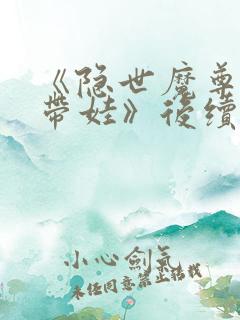 《隐世魔尊
带娃》後續
小心劍氣
未经同意禁止转载